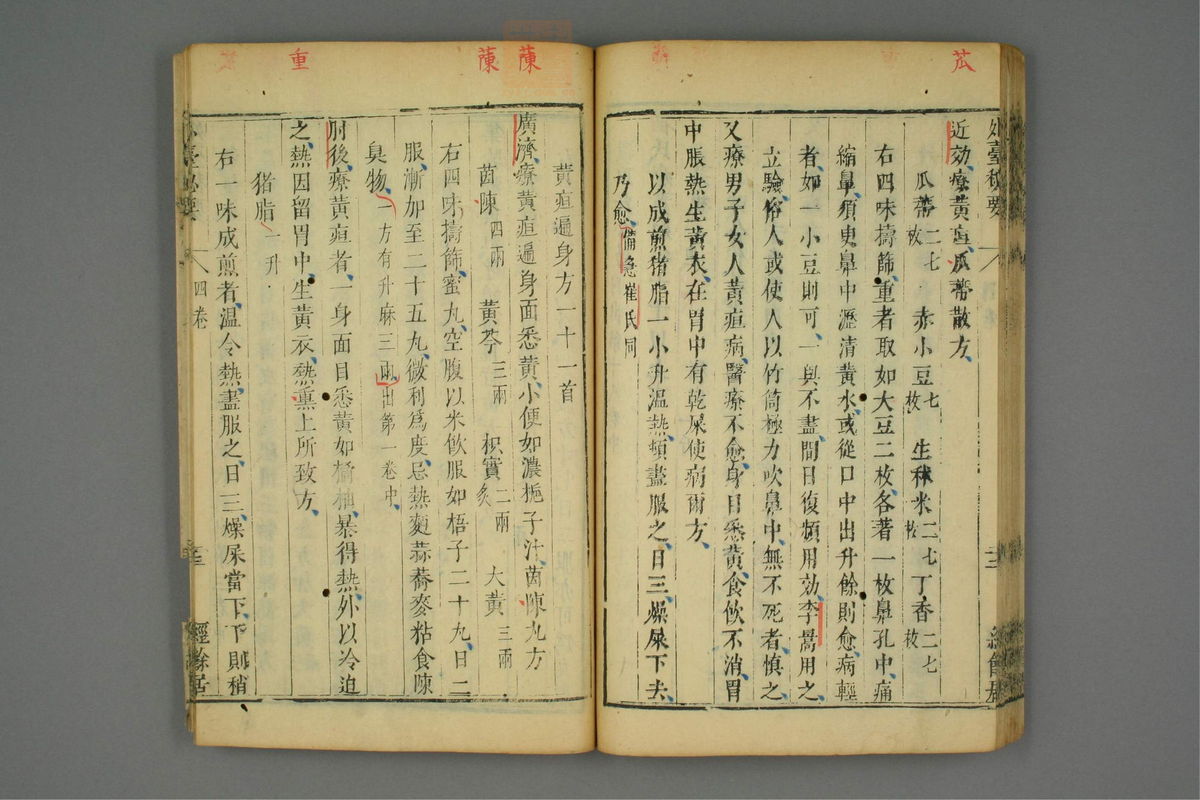 苽
外臺秘要
近効療黃疸瓜蔕散方
瓜蔕二七枚 赤小豆七枚 生秫米二七枚 丁香二七枚
右四味擣篩重者取如大豆二枚各著一枚鼻孔中痛
縮鼻須臾鼻中瀝清黃水或從口中出升餘則愈病輕
者如一小豆則可一與不盡間日復頻用効李暠用之
立驗俗人或使人以竹筒極力吹鼻中無不死者慎之
又療男子女人黃疸病醫療不愈身目悉黃食飲不消胃
中脹熱生黃衣在胃中有乾屎使病爾方
以成煎猪脂一小升溫熱頓盡服之日三燥屎下去
乃愈備急崔氏同
蔯
蔯
重
黃疸遍身方一十一首
廣濟療黃疸遍身面悉黃小便如濃梔子汁茵陳丸方
茵陳四兩 黃芩三兩 枳實二兩炙 大黃三兩
右四味擣篩蜜丸空腹以米飲服如梧子二十丸日二
服漸加至二十五丸微利爲度忌熱麪蒜蕎麥粘食陳
臭物一方有升麻三兩出第一卷中
肘後療黃疸者一身面目悉黃如橘柚暴得熱外以冷迫
之熱因留胃中生黃衣熱熏上所致方
猪脂一升
右一味成煎者溫令熱盡服之日三燥屎當下下則稍
外臺秘要
四卷
經餘居